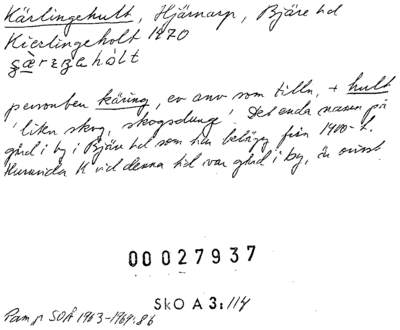 Kärlingehult, Hjärnarp, Bjäre hd
Kierlingeholt 1470
personben käring, ev anv som tilln, + hult
'liten skog, skogsdunge'. Det enda namn på
gård i by i Bjäre hd som har belägg från 1400-t.
Huruvida K vid denna tid var gård i by, är ovisst
00027937
SkO A 3:114
Pamp SOÅ 1963-1964:86